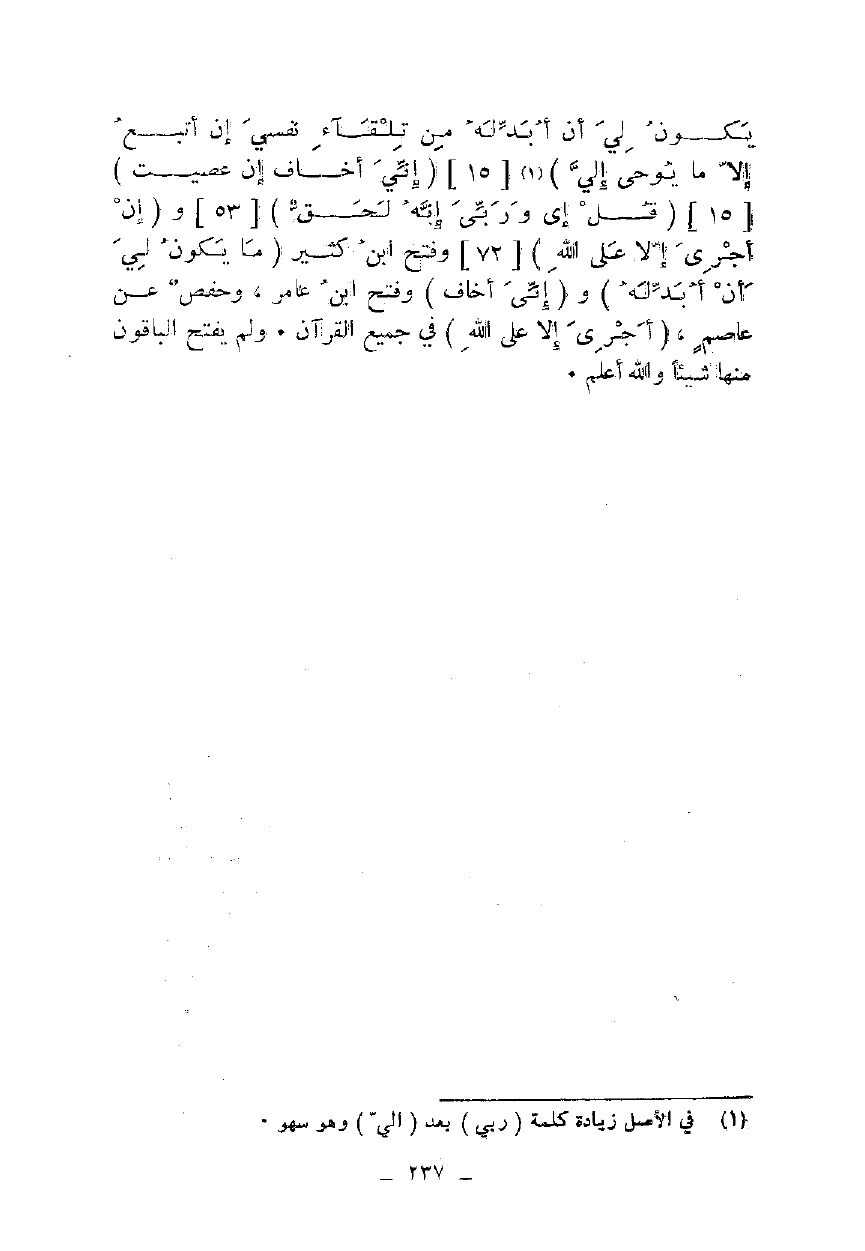 يَكـــونُ لِيَ أن أُبَدِّلَهُ مِن تِلْقَـآءِ نفسيَ إن أتبـــعُ
إلاّ ما يُوحى إليَّ ) (١) [ ١٥ ] ( إنِّيَ أخـــاف إن عصيـــت )
[ ١٥ ] ( قُـــلْ إى وَرَبِّىَ إنَّهُ لَحَـــقٌّ ) [ ٥٣ ] و ( إنْ
أجْرِىَ إلّا عَلى اللهِ ) [ ٧٢ ] وفتح ابنُ كثـــير ( مَا يَكونُ لِيَ
أَنْ أُبَدِّلَهُ ) و ( إنِّىَ أخاف ) وفتح ابنُ عامر ، وحفصٌ عـــن
عاصمٍ ، ( أَجْرِىَ إلا على اللهِ ) في جميع القرآن ٠ ولم يفتح الباقون
منها شيئاً والله أعلم ٠
(١) في الأصل زيادة كلمة ( ربي ) بعد ( اليّ ) وهو سهو ٠
_ ٢٣٧ _